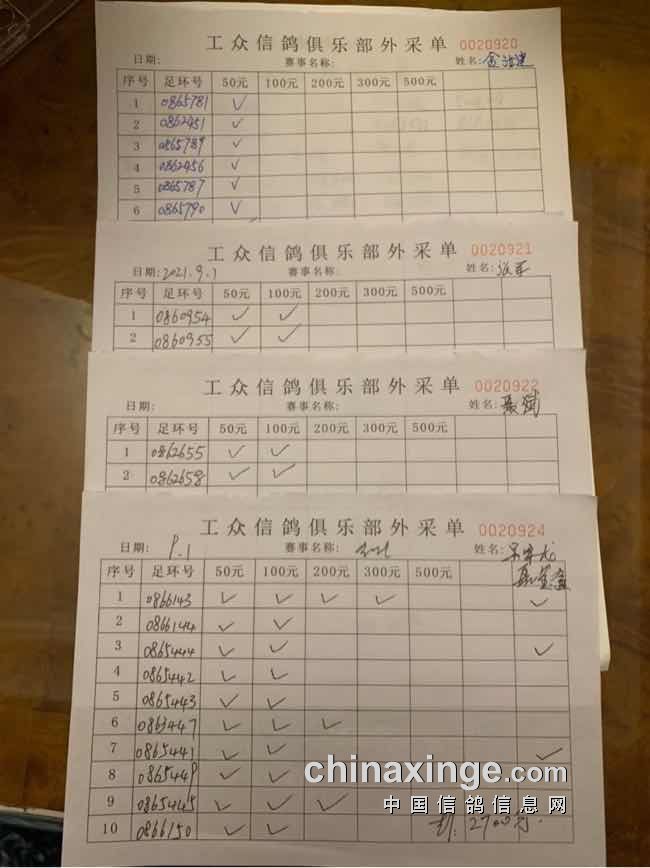 工众信鸽俱乐部外采单 0020920
日期: 赛事名称: 姓名:
序号 足环号 50元 100元 200元 300元 500元
1 0865781 ✓
2 0862451 ✓
3 0865789 ✓
4 0862456 ✓
5 0865787 ✓
6 0865790 ✓
工众信鸽俱乐部外采单 0020921
日期: 2021.9.1 赛事名称: 姓名:
序号 足环号 50元 100元 200元 300元 500元
1 0860954 ✓ ✓
2 0860955 ✓ ✓
工众信鸽俱乐部外采单 0020922
日期: 赛事名称: 姓名: 聂斌
序号 足环号 50元 100元 200元 300元 500元
1 0862655 ✓ ✓
2 0862658 ✓ ✓
工众信鸽俱乐部外采单 0020924
日期: 9.1 赛事名称: 姓名:
序号 足环号 50元 100元 200元 300元 500元
1 0866143 ✓ ✓ ✓ ✓ ✓
2 0866144 ✓ ✓
3 0865444 ✓ ✓ ✓
4 0865442 ✓ ✓
5 0865443 ✓ ✓
6 0863447 ✓ ✓ ✓
7 0865441 ✓ ✓ ✓
8 0865449 ✓ ✓
9 0865445 ✓ ✓ ✓
10 0866150 ✓ ✓ 2700
chinaxinge.com
中国信鸽信息网